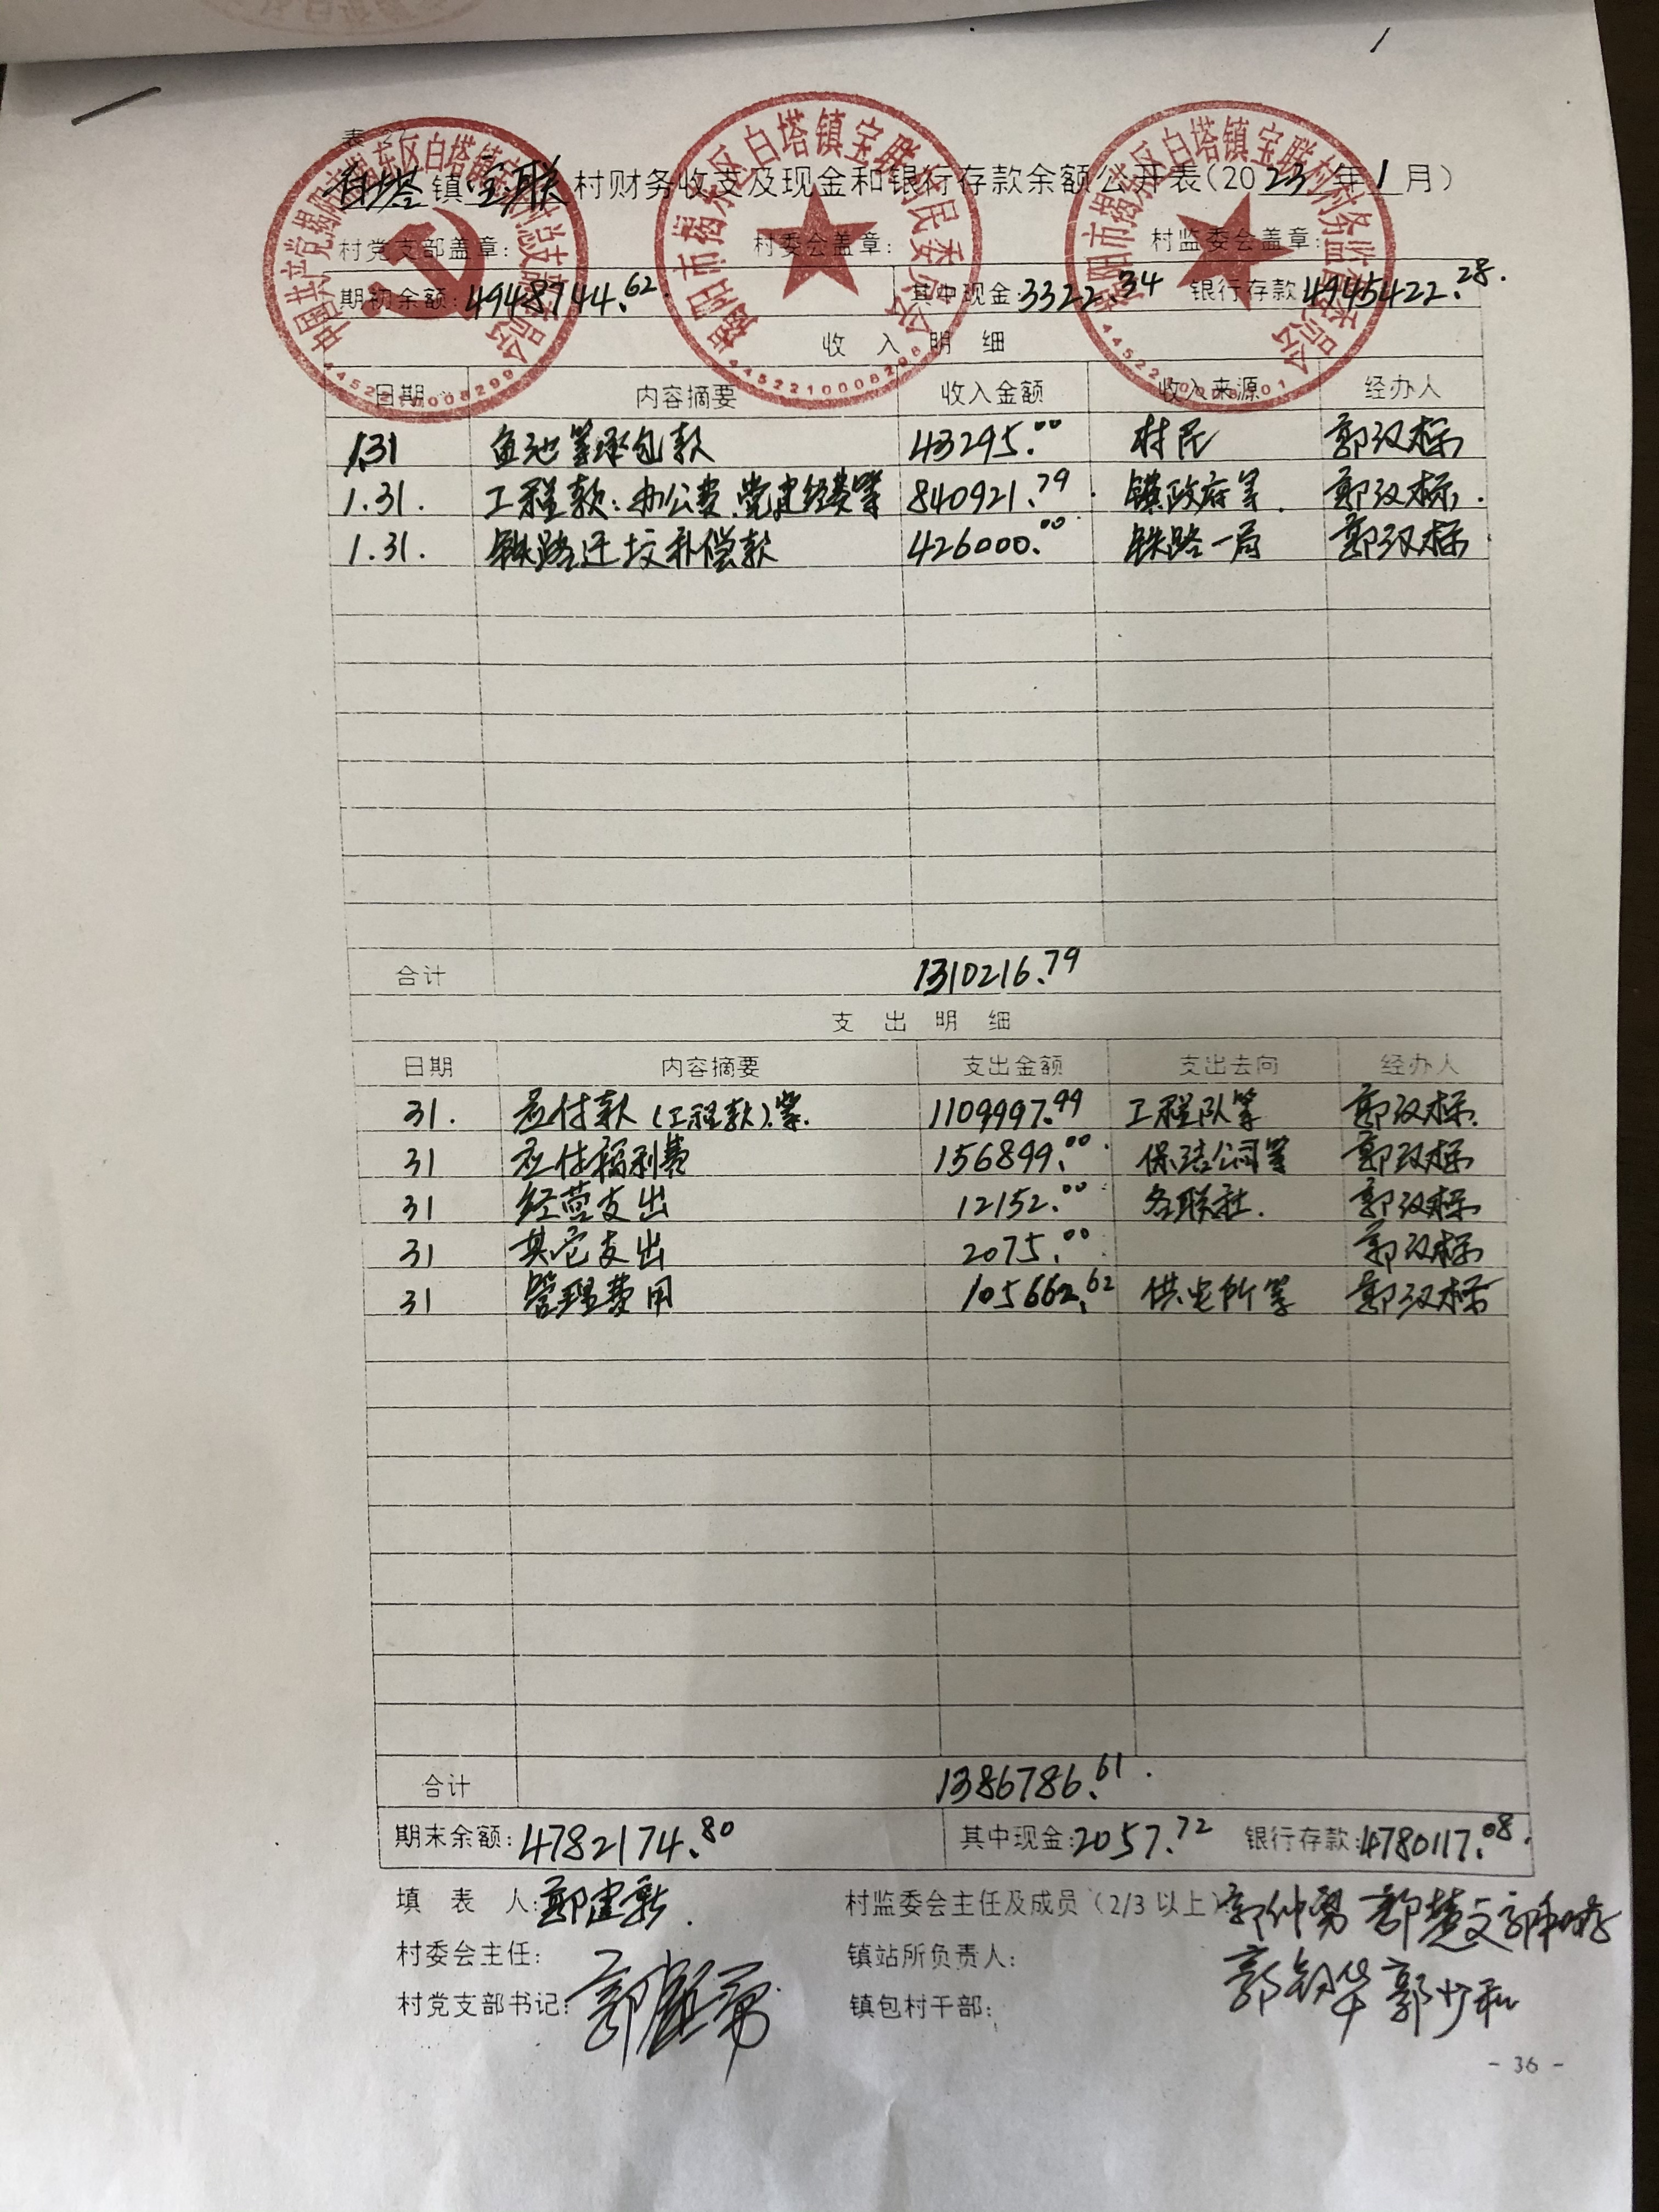 白塔镇宝联村财务收支及现金和银行存款余额公开表(2023年1月)
村党支部盖章: 村委会盖章: 村监委会盖章:
期初余额:4948744.62 其中现金:3322.34 银行存款4945422.28.
收 入 明 细
日期 内容摘要 收入金额 收入来源 经办人
1.31 鱼池等承包款 43295.00 村民 郭汉标
1.31. 工程款:办公费.党建经费等 840921.79. 镇政府等. 郭汉标.
1.31. 铁路迁坟补偿款 426000.00 铁路一局 郭汉标
合计 1310216.79
支 出 明 细
日期 内容摘要 支出金额 支出去向 经办人
31. 应付款(工程款).等. 1109997.99 工程队等 郭汉标.
31 应付福利费 156899.00. 保洁公司等 郭汉标
31 经营支出 12152.00 各联社. 郭汉标
31 其它支出 2075.00 郭汉标
31 管理费用 105662.62 供电所等 郭汉标
合计 1386786.61.
期末余额:4782174.80 其中现金:2057.72 银行存款:4780117.08.
填 表 人:郑建新. 村监委会主任及成员(2/3以上) 郭仲勇 郭慧文
村委会主任: 镇站所负责人: 郭钢华 郭少和
村党支部书记: 镇包村干部:
- 36 -